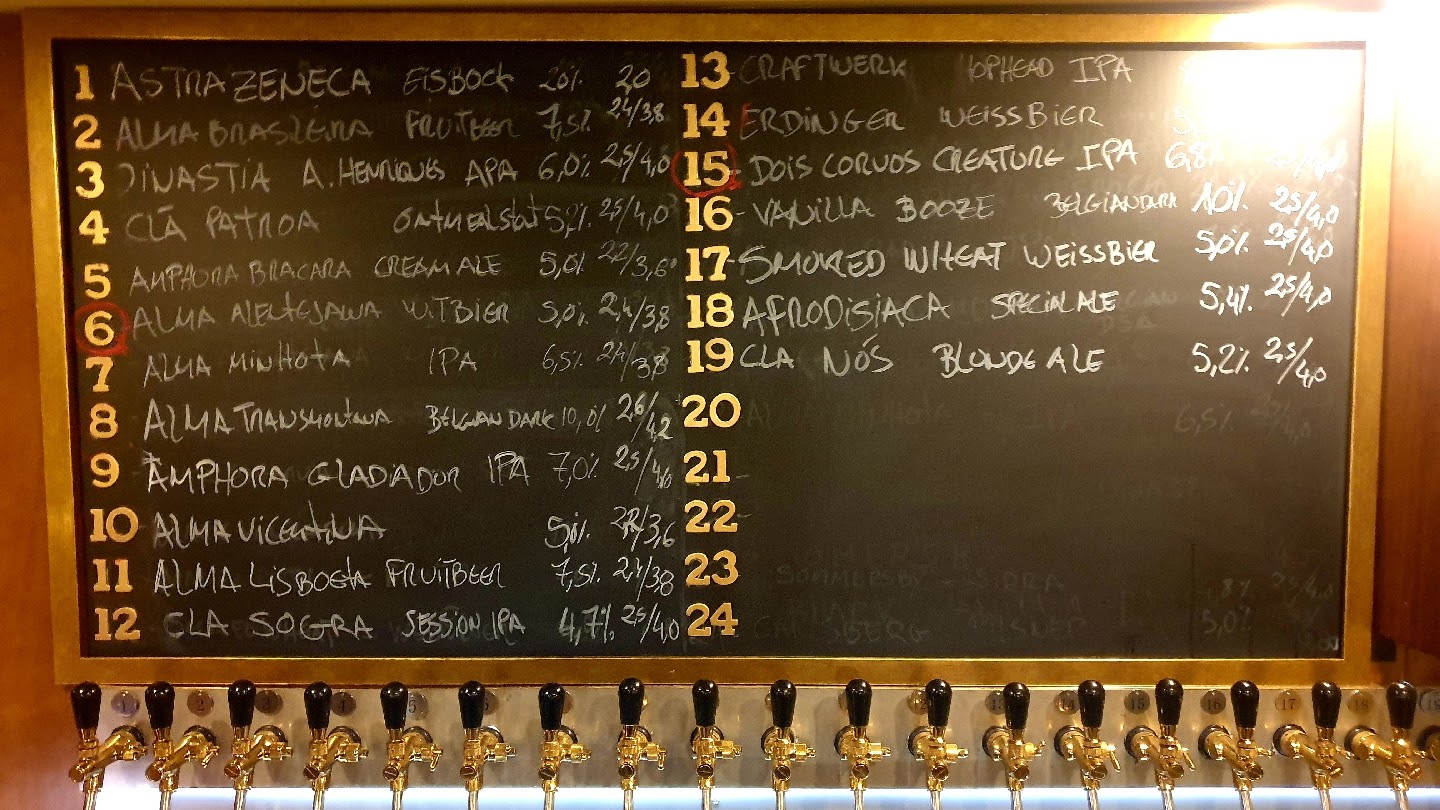 1 ASTRAZENECA EISBOCK 20% 20
2 ALMA BRASILEIRA FRUITBEER 7,5% 24/3,8
3 DINASTIA A. HENRIQUES APA 6,0% 2,5/4,0
4 CLÃ PATROA OATMEALSTOUT 5,2% 25/4,0
5 AMPHORA BRACARA CREAM ALE 5,0% 22/3,6
6 ALMA ALENTEJANA WITBIER 5,0% 2,4/3,8
7 ALMA MINHOTA IPA 6,5% 24/3,8
8 ALMA TRANSMONTANA BELGIAN DARK 10,0% 2,6/4,2
9 AMPHORA GLADIADOR IPA 7,0% 2,5/4,0
10 ALMA VICENTINA 5,0% 22/3,6
11 ALMA LISBOETA FRUITBEER 7,5% 2,4/3,8
12 CLA SOGRA SESSION IPA 4,7% 25/4,0
13 CRAFTWERK HOPHEAD IPA
14 ERDINGER WEISSBIER
15 DOIS CORVOS CREATURE IPA 6,8% 2,5/4,0
16 - VANILLA BOOZE BELGIANDARK 10% 2,5/4,0
17 SMOKED WHEAT WEISSBIER 5,0% 25/4,0
18 AFRODISIACA SPECIAL ALE 5,4% 2,5/4,0
19 CLA NÓS BLONDE ALE 5,2% 2,5/4,0
20 MINHOTA IPA 6,5%
21
22
23 SOMMERSBY - SIDRA
24 CARLSBERG PILSNER 5,0%